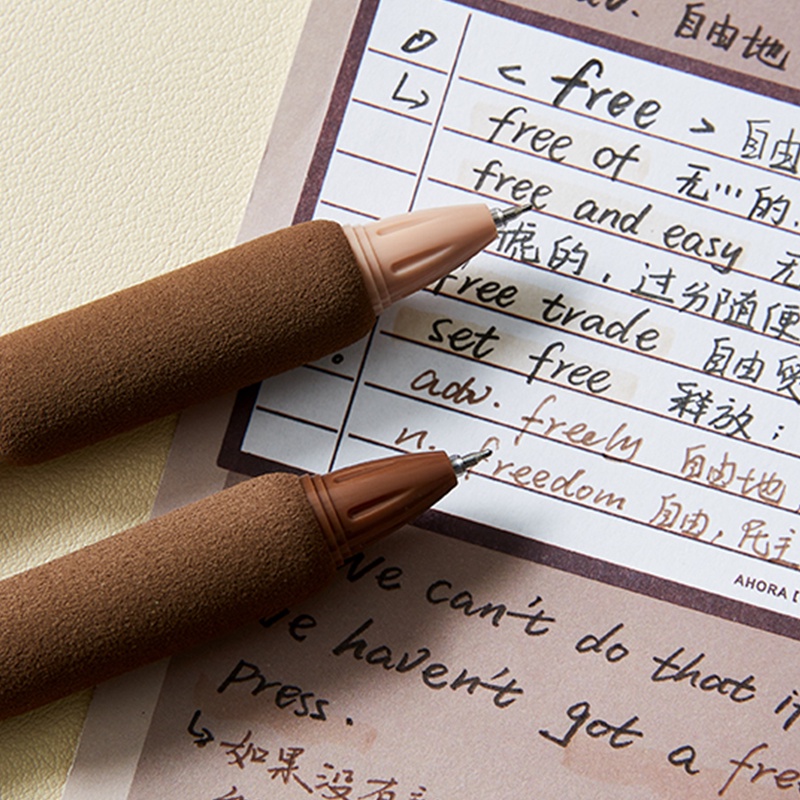 自由地
< free > 自由
free of 无…的.
free and easy 无
虑的，过分随便
free trade 自由贸
set free 释放；
adv. freely 自由地
n. freedom 自由，民主
AHORA
We can't do that
haven't got a free
press.
↳ 如果没有